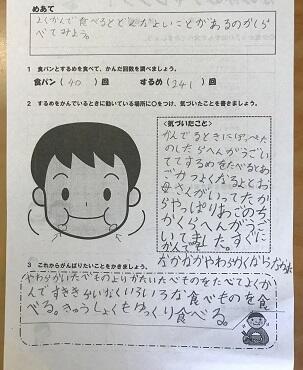 めあて
よくかんで食べるとどんなよいことがあるのかしら
べてみよう。
1 食パンとするめを食べて、かんだ回数を調べましょう。
食パン（40）回 するめ（241）回
2 するめをかんでいるときに動いている場所に○をつけ、気づいたことを書きましょう。
＜気づいたこと＞
かんでるときにほっぺた
のしたらへんがうごい
ててするめをたべるとあ
ごがつよくなるよとお
母さんがいってたか
らやっぱりあごのち
かくらへんがうご
いてました。すぐに
かんでも
なかなかやわらかくならなかった
3 これからがんばりたいことをかきましょう。
やわらかいたべものよりかたいたべものをたべてよくか
んですききらいがなくいろいろな食べものを食
べる。きゅうしょくもゆっくり食べる。